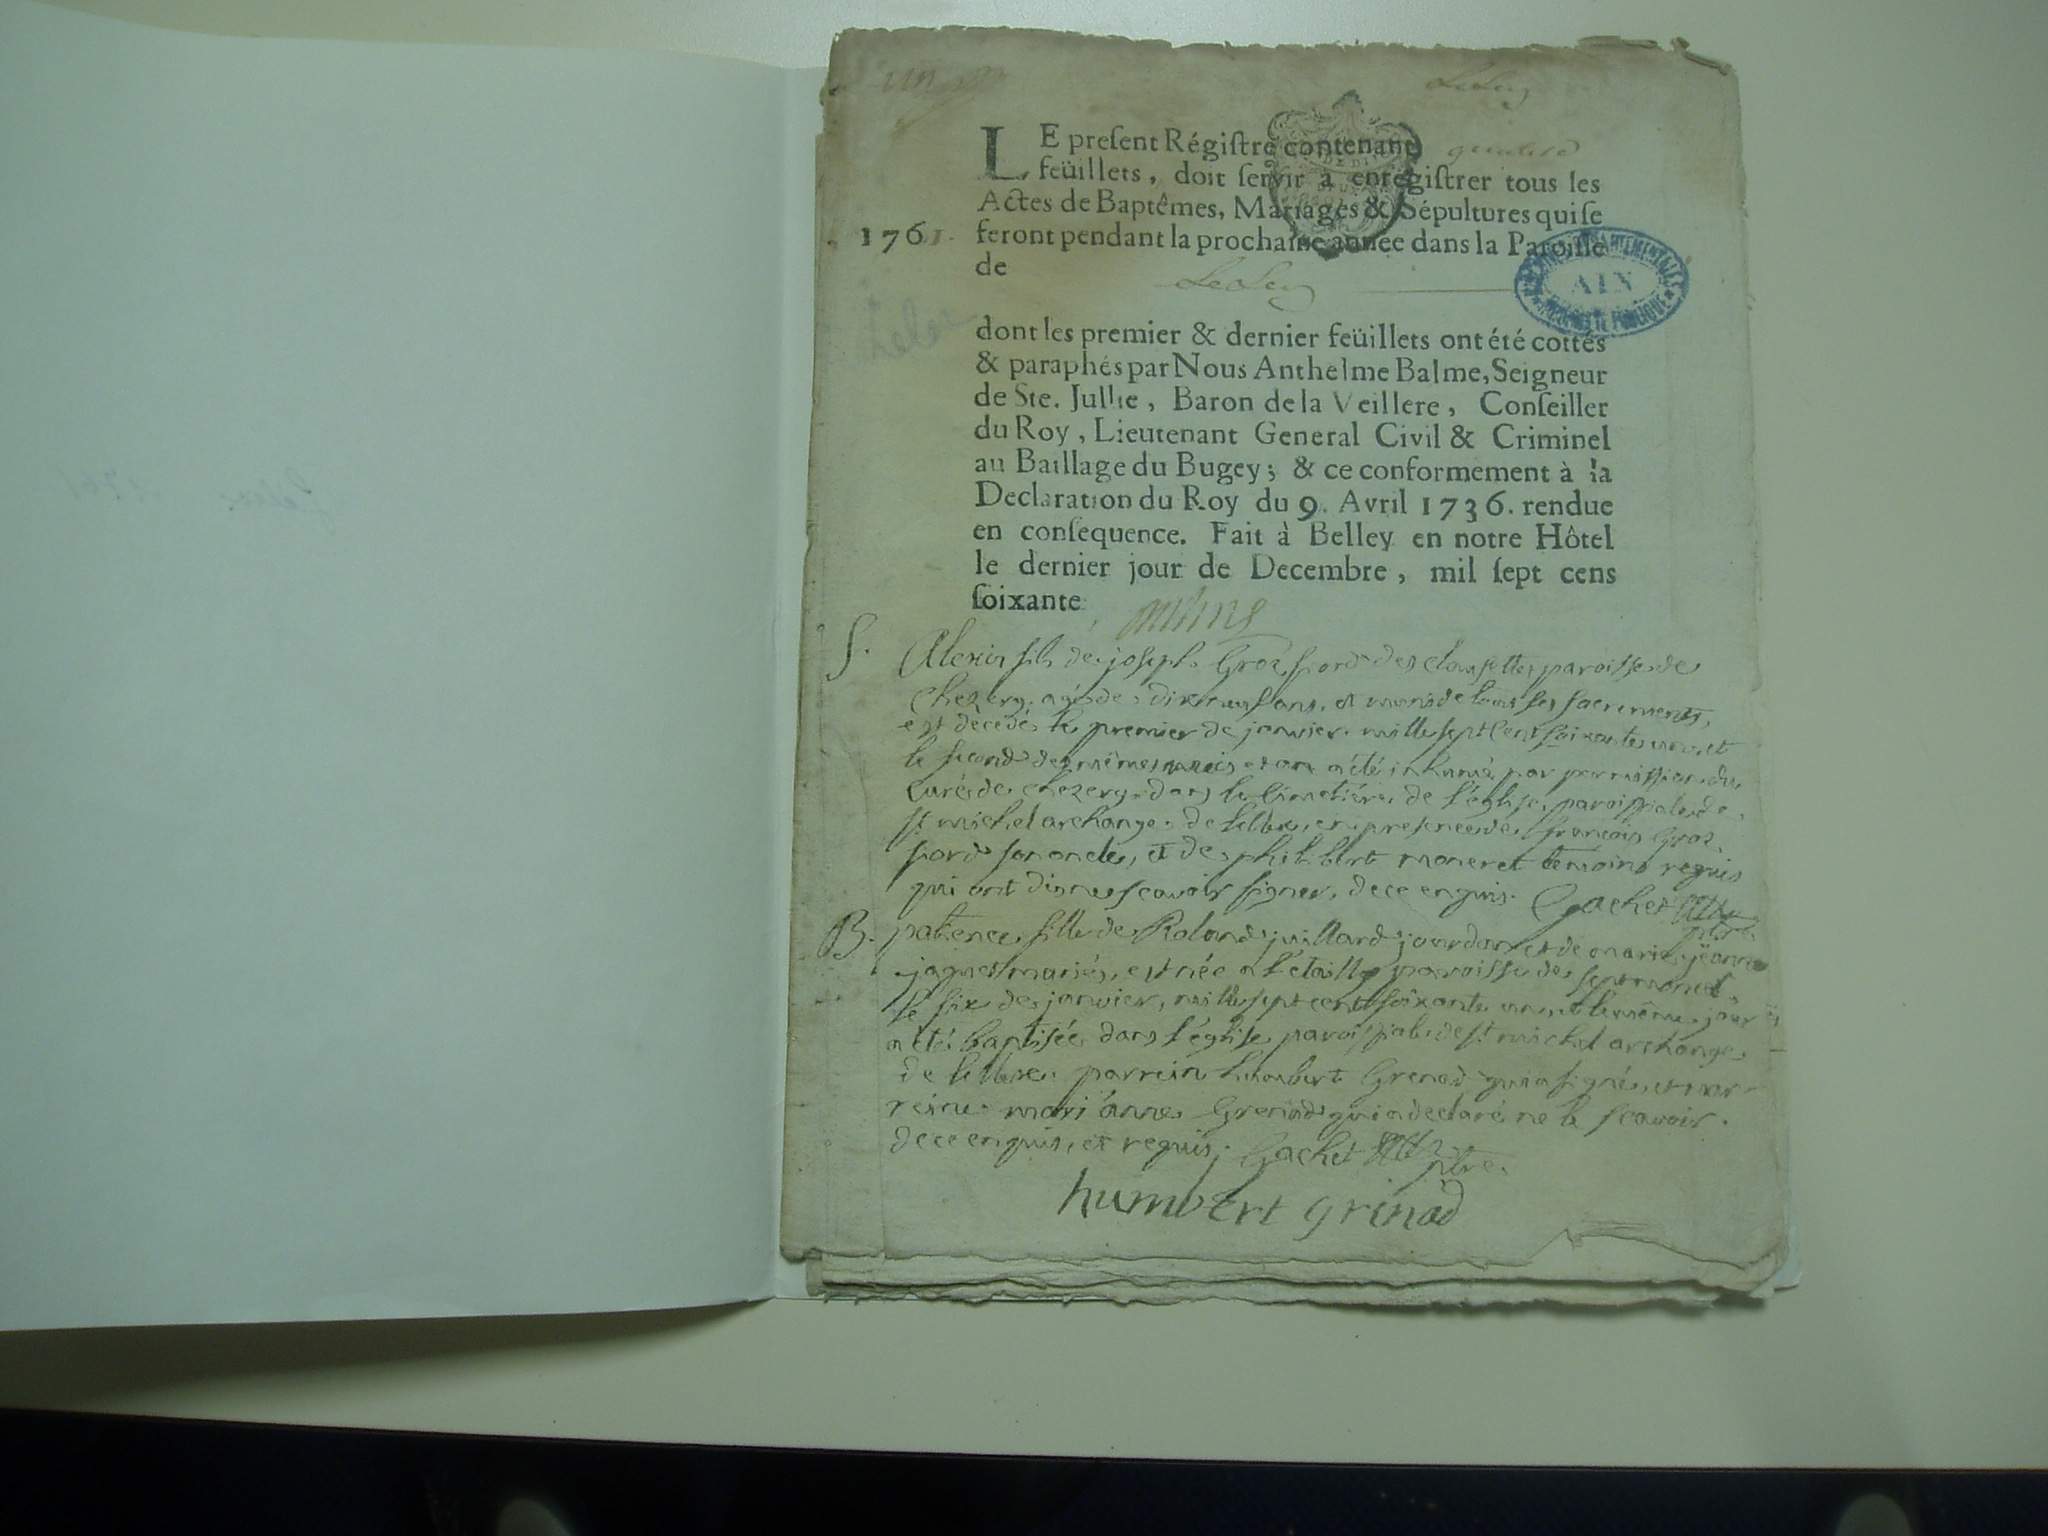 un
LE preſent Régiſtre contenant
feüillets, doit ſervir à enrégiſtrer tous les
Actes de Baptêmes, Mariages & Sépultures qui ſe
1761. feront pendant la prochaine année dans la Paroiſſe
de
AIN
dont les premier & dernier feüillets ont été cottés
& paraphés par Nous Anthelme Balme, Seigneur
de Ste. Jullie, Baron de la Veillere, Conſeiller
du Roy, Lieutenant General Civil & Criminel
au Baillage du Bugey; & ce conformement à la
Declaration du Roy du 9. Avril 1736. rendue
en conſequence. Fait à Belley en notre Hôtel
le dernier jour de Decembre, mil ſept cens
ſoixante
S. Alexis fils de joseph Groz fiord des clousettes paroisse de
Chezery, agé de dixneuf ans, et muni de tous les sacrements,
est décédé le premier de janvier mille sept cent soixante un, et
le second des mêmes mois et an a été inhumé par permission du
curé de chezery dans le cimetiére de l'église paroissiale de
st michel archange de lellex, en presence de françois Groz
fiord son oncle, et de philibert moneret témoins requis
qui ont dis ne scavoir signer, de ce enquis. Gachet
ptre
B. patience fille de Roland juillard jourdan et de marie jeanne
jaquet mariés, est née à l'étaillę paroisse de septmoncel
le six de janvier, mille sept cent soixante un, et le même jour
a été baptisée dans l'église paroissiale de st michel archange
de lellex. parrein humbert Grenad qui a signé, et mar-
reine mari anne Grenad qui a declaré ne le scavoir.
de ce enquis, et requis. Gachet
ptre.
humbert grinad